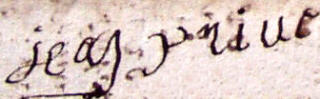 jean prive